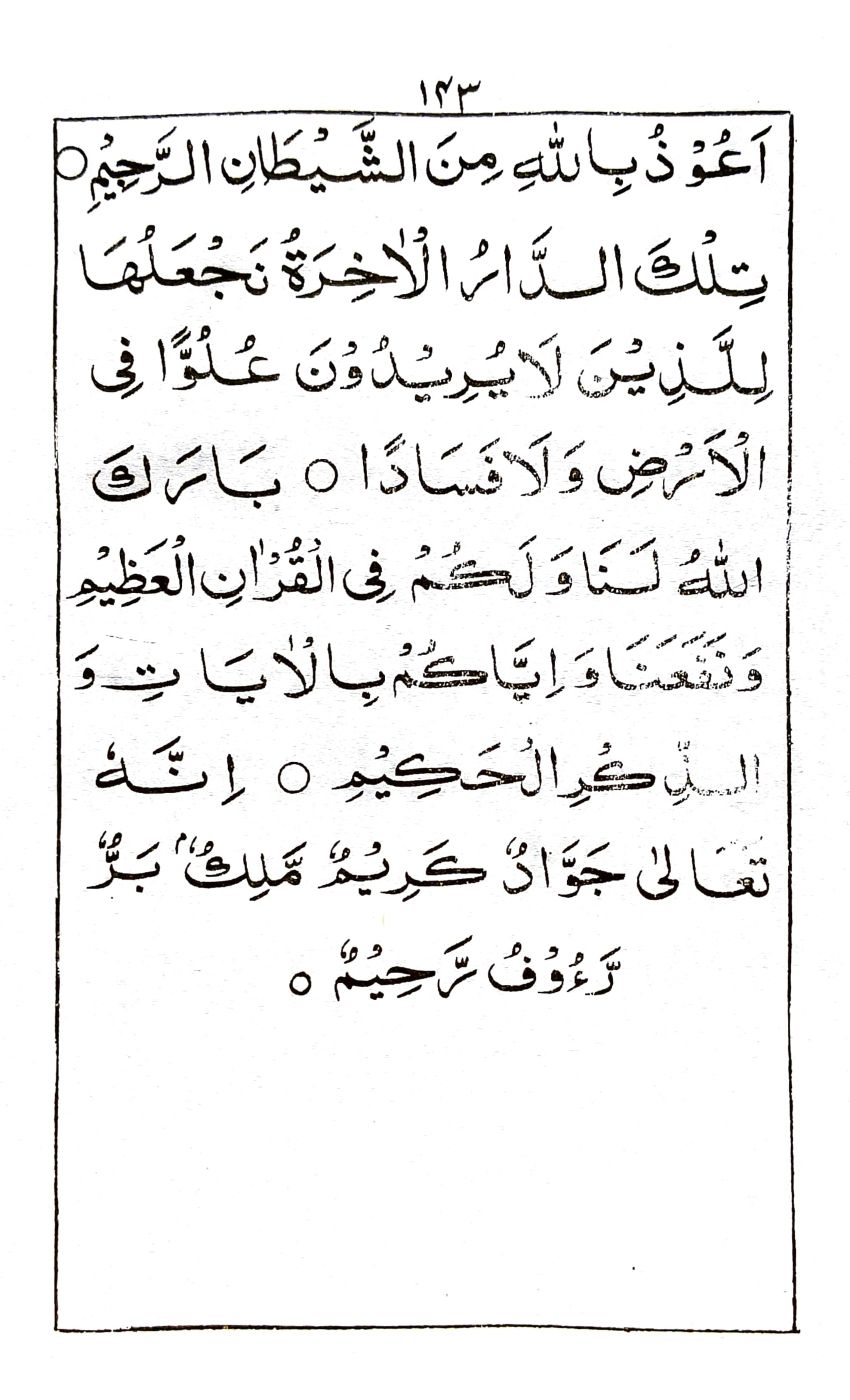 ۱۴۳
اَعُوْذُ بِاللّٰهِ مِنَ الشَّيْطَانِ الرَّجِيْمِ ○
تِلْكَ الدَّارُ الْاٰخِرَةُ نَجْعَلُهَا
لِلَّذِيْنَ لَا يُرِيْدُوْنَ عُلُوًّا فِى
الْاَرْضِ وَلَا فَسَادًا ○ بَارَكَ
اللّٰهُ لَنَا وَلَكُمْ فِى الْقُرْاٰنِ الْعَظِيْمِ
وَنَفَعَنَا وَاِيَّاكُمْ بِالْاٰيَاتِ وَ
الذِّكْرِ الْحَكِيْمِ ○ اِنَّهٗ
تَعَالٰى جَوَّادٌ كَرِيْمٌ مَّلِكٌ ۢ بَرٌّ
رَّءُوْفٌ رَّحِيْمٌ ○